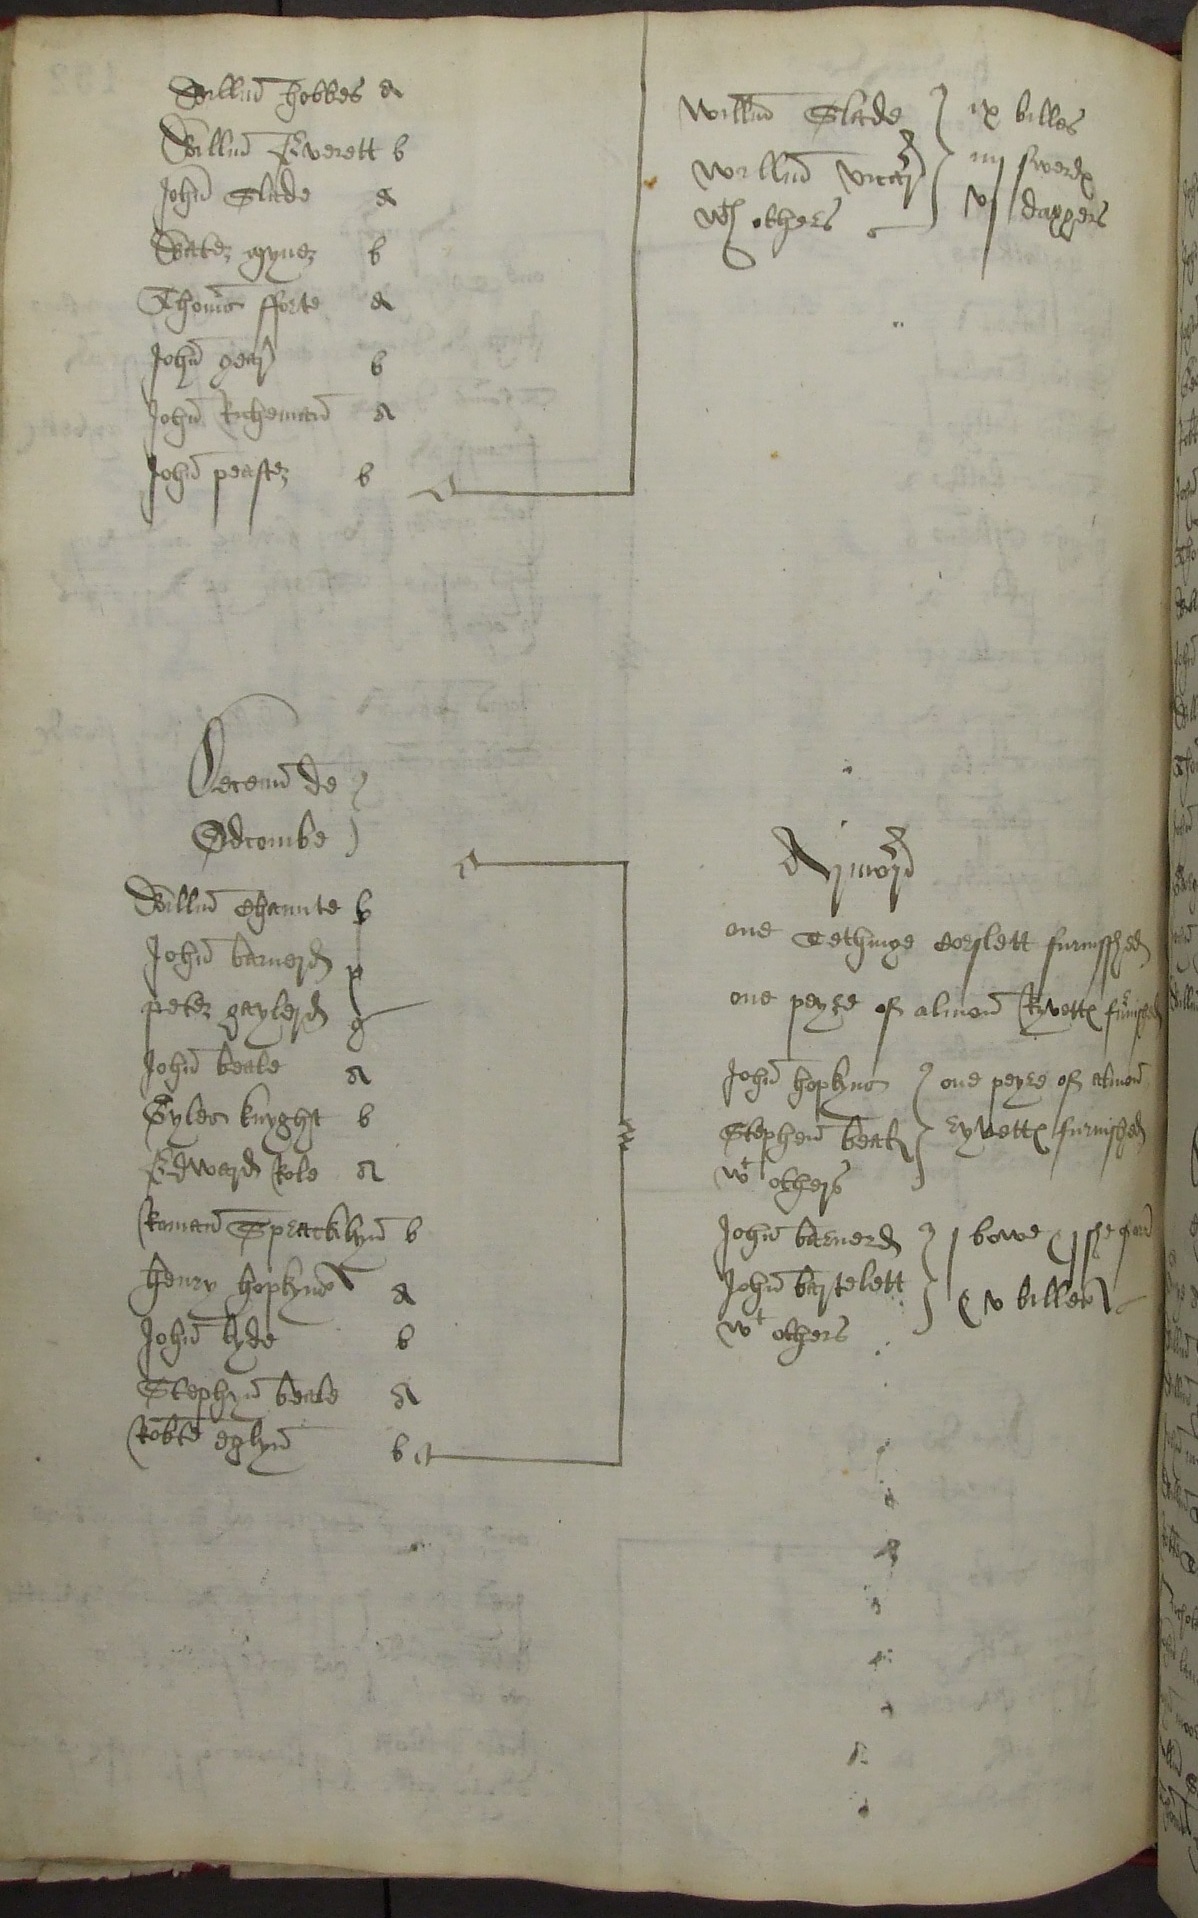 Willm hobbes a
Willm Everett b
John Slade a
Water gyner b
Thoms fforte a
John gear b
John Richeman a
John peaster b
Willm Slade
Willm vicary
wth others
ix billes
iiij swerdes
vj daggers
Decenn de
Odcombe
Willm Chaunte b
John barnerd p
peter gaylerd g
John beale a
Gyles knyght b
Edward Role a
Roman Spracklyn b
henry hopkyns a
John lyde b
Stephyn beale a
Robte eglyn b
Armoryd
one Tethinge corslett furnisshed
one peyre of almon Ryvettes furnished
John hopkyns
Stephen beale
wt others
one peyre of almon
ryvettes furnished
John barnerd
John bartelett
wt others
j bowe j she
v billes